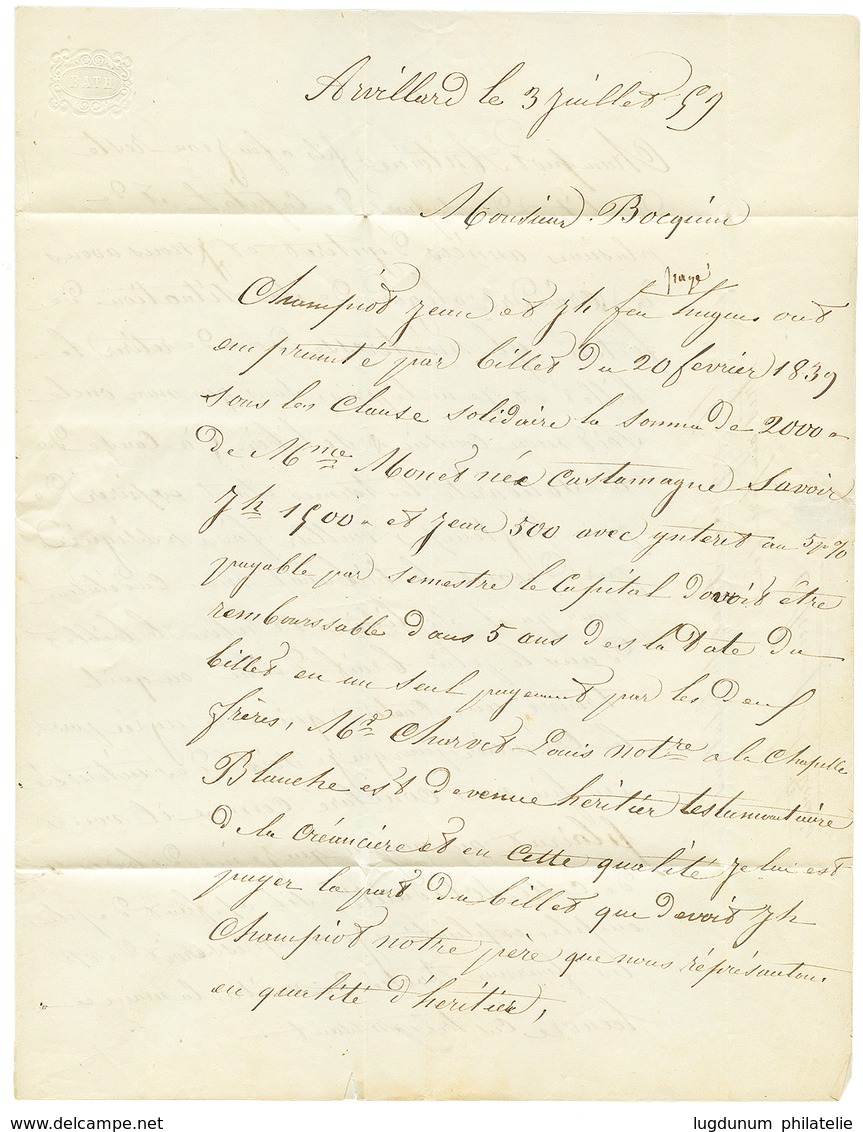 BATH
Arvillard le 3 juillet 59
Monsieur Bocquin
payé
Champiot Jean et Jh feu hugue ont
emprunté par billet du 20 fevrier 1839
sous les clause solidaire la somme de 2000 "
de Mme Monet née Castamagne Savoir
Jh 1500 " et Jean 500 avec ynteret au 5 p %
payable par semestre le Capital devoit être
remboursable dans 5 ans des la Date du
billet en un seul payement par les deux
frères, Mr Charvet Louis notre a la Chapelle
Blanche est devenue héritier testamentaire
de la Créancière et en cette qualité je lui est
payer la part du billet que devoit Jh
Champiot notre père que nous réprésentons
en qualité d'héritier,
lugdunum philatelie